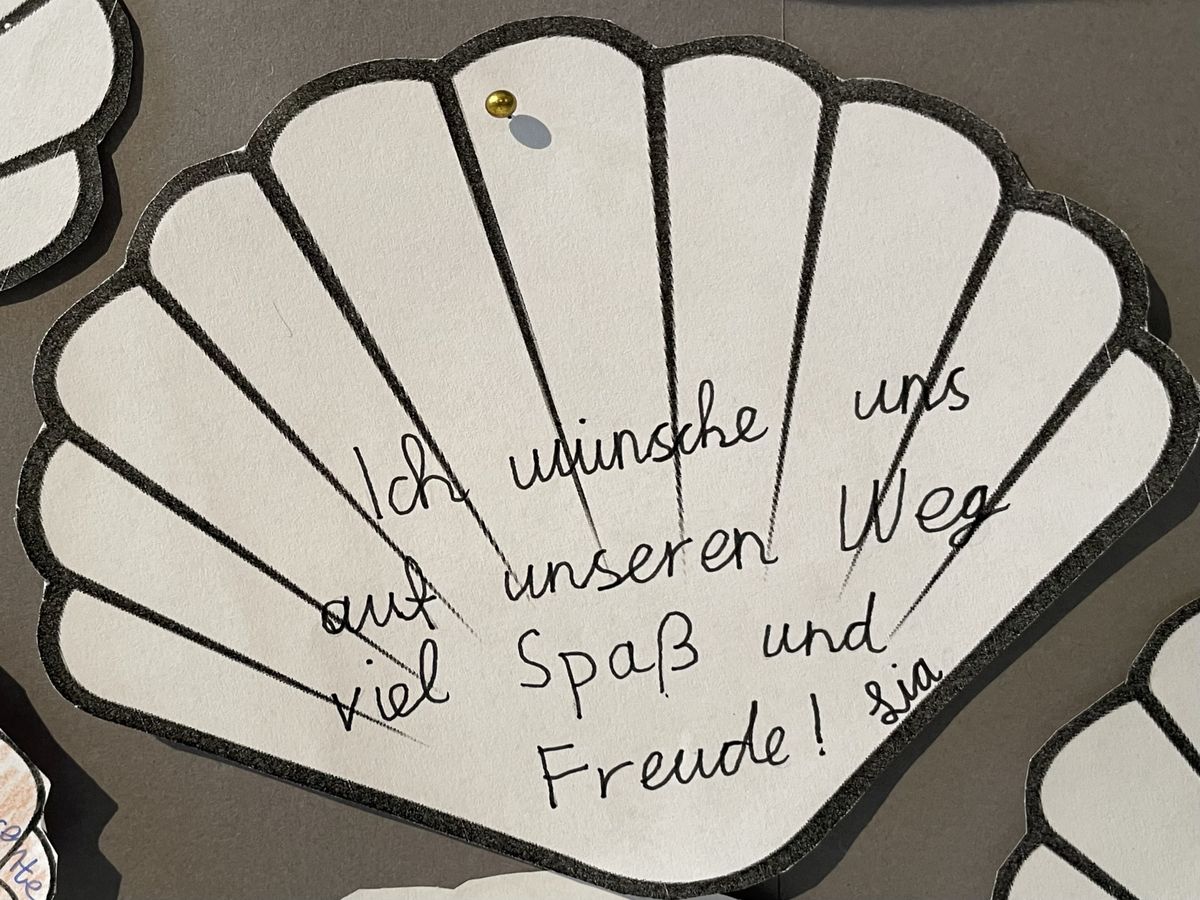 Ich wünsche uns
auf unseren Weg
viel Spaß und
Freude! Lia